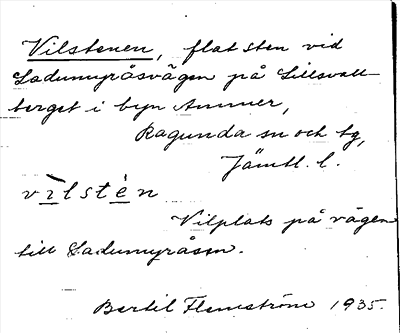 Vilstenen, flat sten vid
Ladumyråsvägen på Lillsvall-
berget i byn Ammer,
Ragunda sn och tg,
Jämtl. l.
vìlstèn
Vilplats på vägen
till Ladumyråsen.
Bertil Flemström 1935.